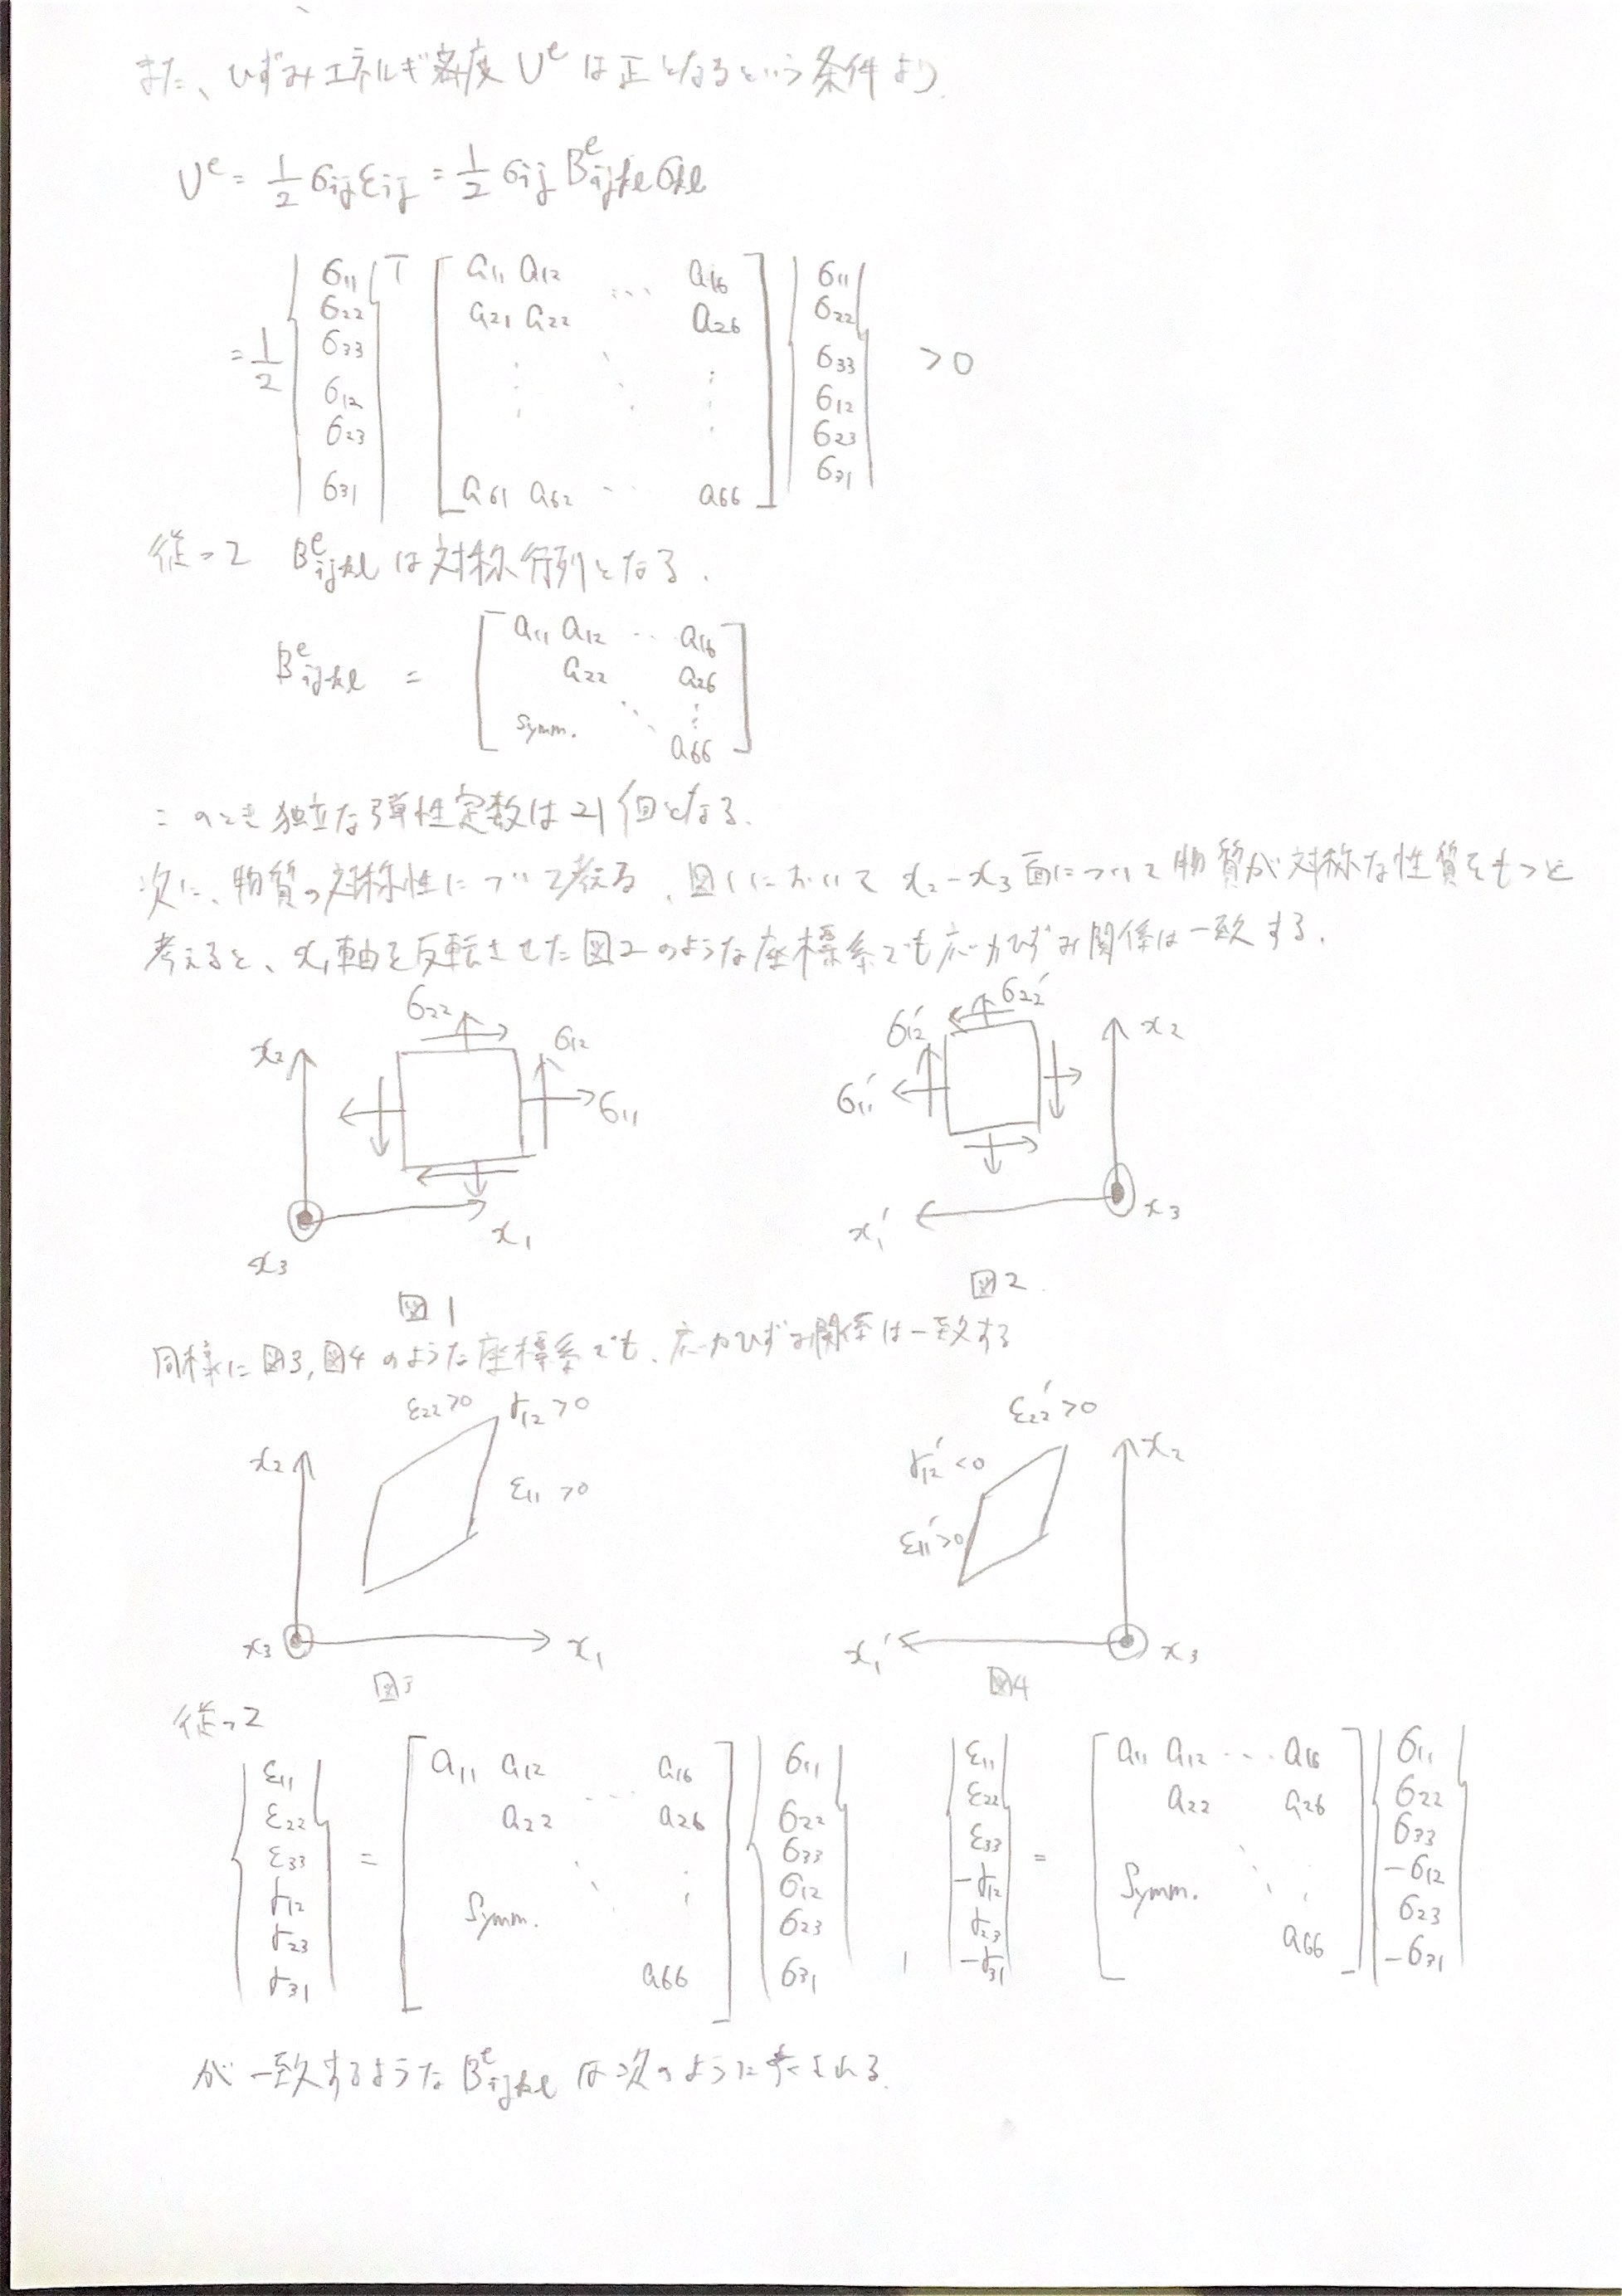 また、ひずみエネルギ密度 Uᵉ は正となるという条件より
Uᵉ = 1/2 σij εij = 1/2 σij Bᵉijkl σkl
= 1/2 {σ11 σ22 σ33 σ12 σ23 σ31}ᵀ [a11 a12 … a16
a21 a22 a26
⋮ ⋱ ⋮
a61 a62 … a66] {σ11 σ22 σ33 σ12 σ23 σ31} > 0
従って Bᵉijkl は対称行列となる.
Bᵉijkl = [a11 a12 … a16
a22 a26
Symm. ⋱ ⋮
a66]
このとき独立な弾性定数は21個となる.
次に、物質の対称性について考える. 図1において x2-x3 面について物質が対称な性質をもつと
考えると、x1軸を反転させた図2のような座標系でも応力ひずみ関係は一致する.
σ22 σ12 σ11 x2 x1 x3
図1
σ22' σ12' σ11' x2 x1' x3
図2
同様に図3,図4のような座標系でも、応力ひずみ関係は一致する
ε22>0 γ12>0 ε11>0 x2 x1 x3
図3
ε22'>0 γ12'<0 ε11'>0 x2 x1' x3
図4
従って
{ε11 ε22 ε33 γ12 γ23 γ31} = [a11 a12 … a16
a22 a26
Symm. ⋱ ⋮
a66] {σ11 σ22 σ33 σ12 σ23 σ31} ,
{ε11 ε22 ε33 -γ12 γ23 -γ31} = [a11 a12 … a16
a22 a26
Symm. ⋱ ⋮
a66] {σ11 σ22 σ33 -σ12 σ23 -σ31}
が一致するような Bᵉijkl は次のように表される.